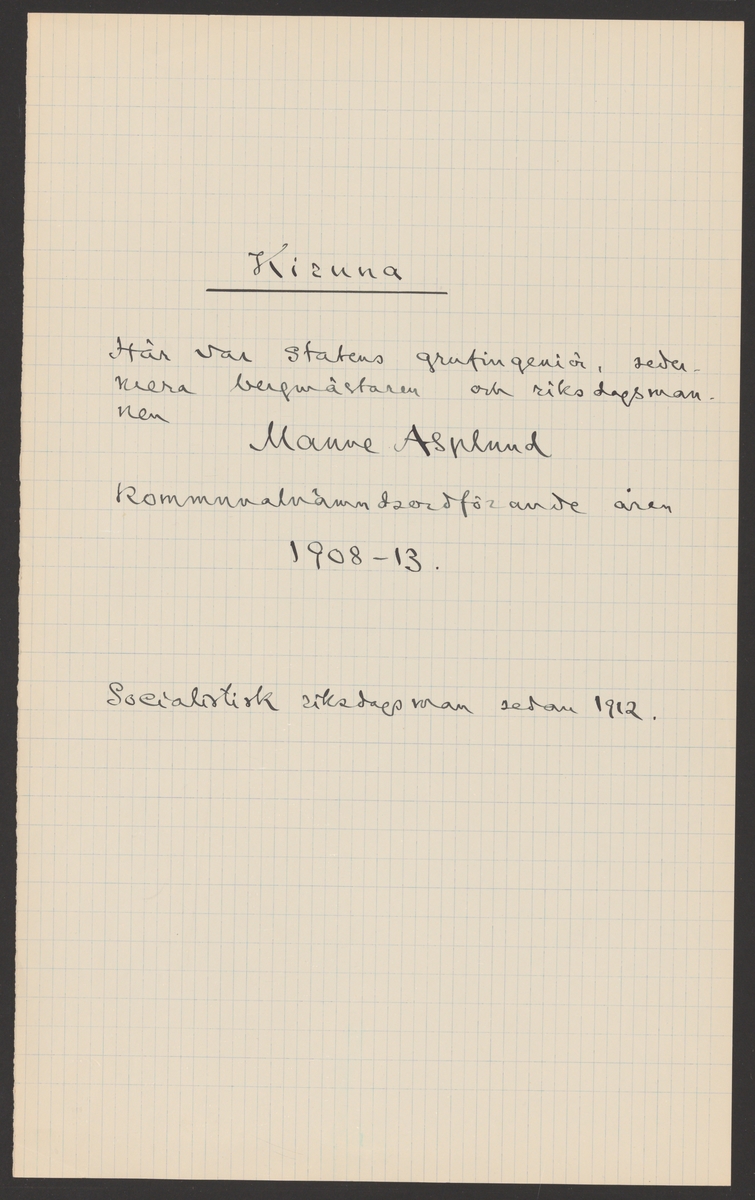 Kiruna
Här var statens grufingeniör, seder-
mera bergmästaren och riksdagsman-
nen
Manne Asplund
kommunalnämndsordförande åren
1908-13.
Socialistisk riksdagsman sedan 1912.